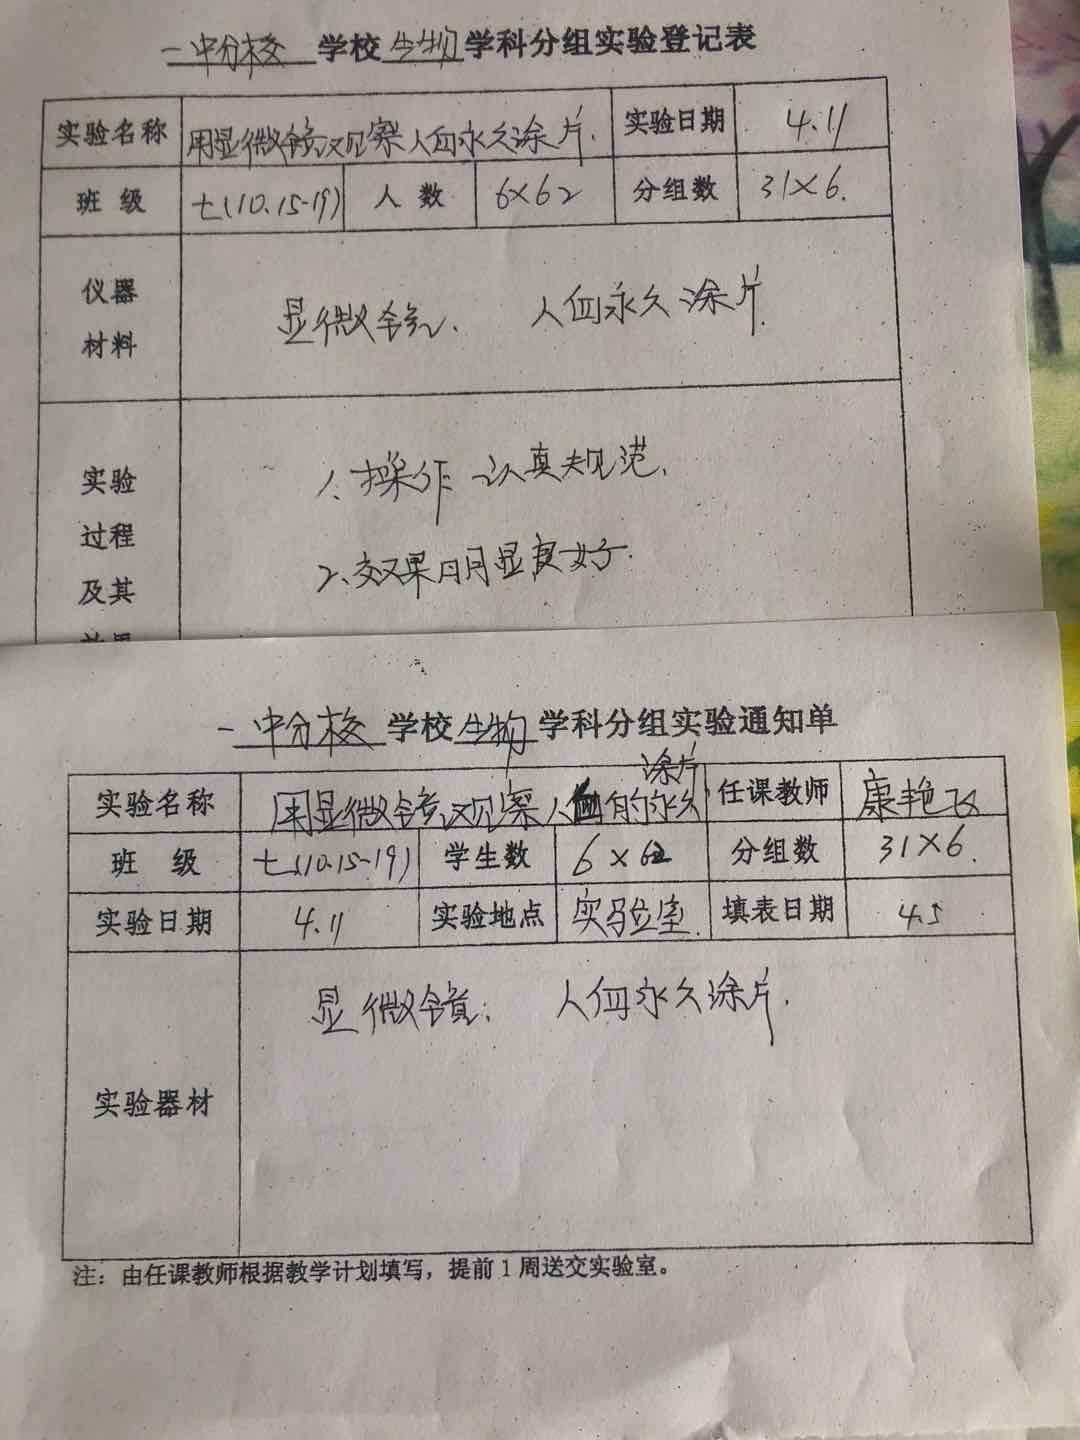 一中分校 学校 生物 学科分组实验登记表
实验名称 用显微镜观察人血永久涂片. 实验日期 4.11
班 级 七(10.15-19) 人 数 6×62 分组数 31×6.
仪器
材料
显微镜. 人血永久涂片.
实验
过程
及其
1、操作认真规范.
2、效果明显良好.
一中分校 学校 生物 学科分组实验通知单
涂片
实验名称 用显微镜观察人血的永久 任课教师 康艳飞
班 级 七(10.15-19) 学生数 6×62 分组数 31×6.
实验日期 4.11 实验地点 实验室. 填表日期 4.5
显微镜; 人血永久涂片.
实验器材
注：由任课教师根据教学计划填写，提前1周送交实验室。